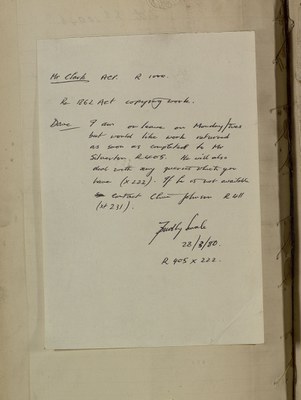 Mr Clark Act. R 1000.
Re 1862 Act copying work.
Dave I am on leave on Monday/Tues
but would like work returned
as soon as completed to Mr
R405. He will also
deal with any queries which you
have (x 222). If he is not available
contact Clive Johnson R 411
(xt 231).
23/8/80.
R 405 x 222.